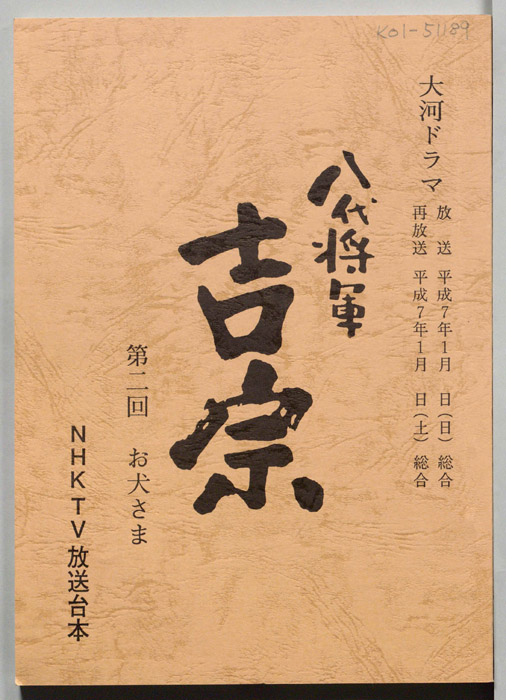 K01-51189
大河ドラマ
放送 平成7年1月 日(日) 総合
再放送 平成7年1月 日(土) 総合
八代将軍
吉宗
第二回 お犬さま
NHKTV放送台本